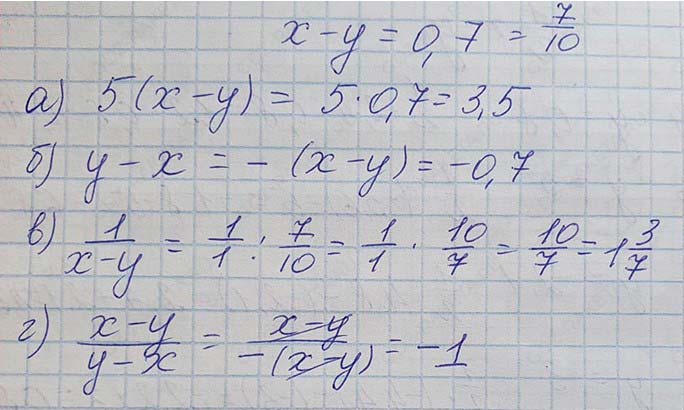 x - y = 0,7 = 7/10
а) 5(x - y) = 5 · 0,7 = 3,5
б) y - x = - (x - y) = -0,7
в) 1/(x - y) = 1/1 : 7/10 = 1/1 · 10/7 = 10/7 = 1 3/7
г) (x - y)/(y - x) = (x - y)/(-(x - y)) = -1